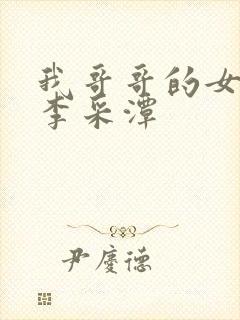 我哥哥的女
李采潭
尹慶德